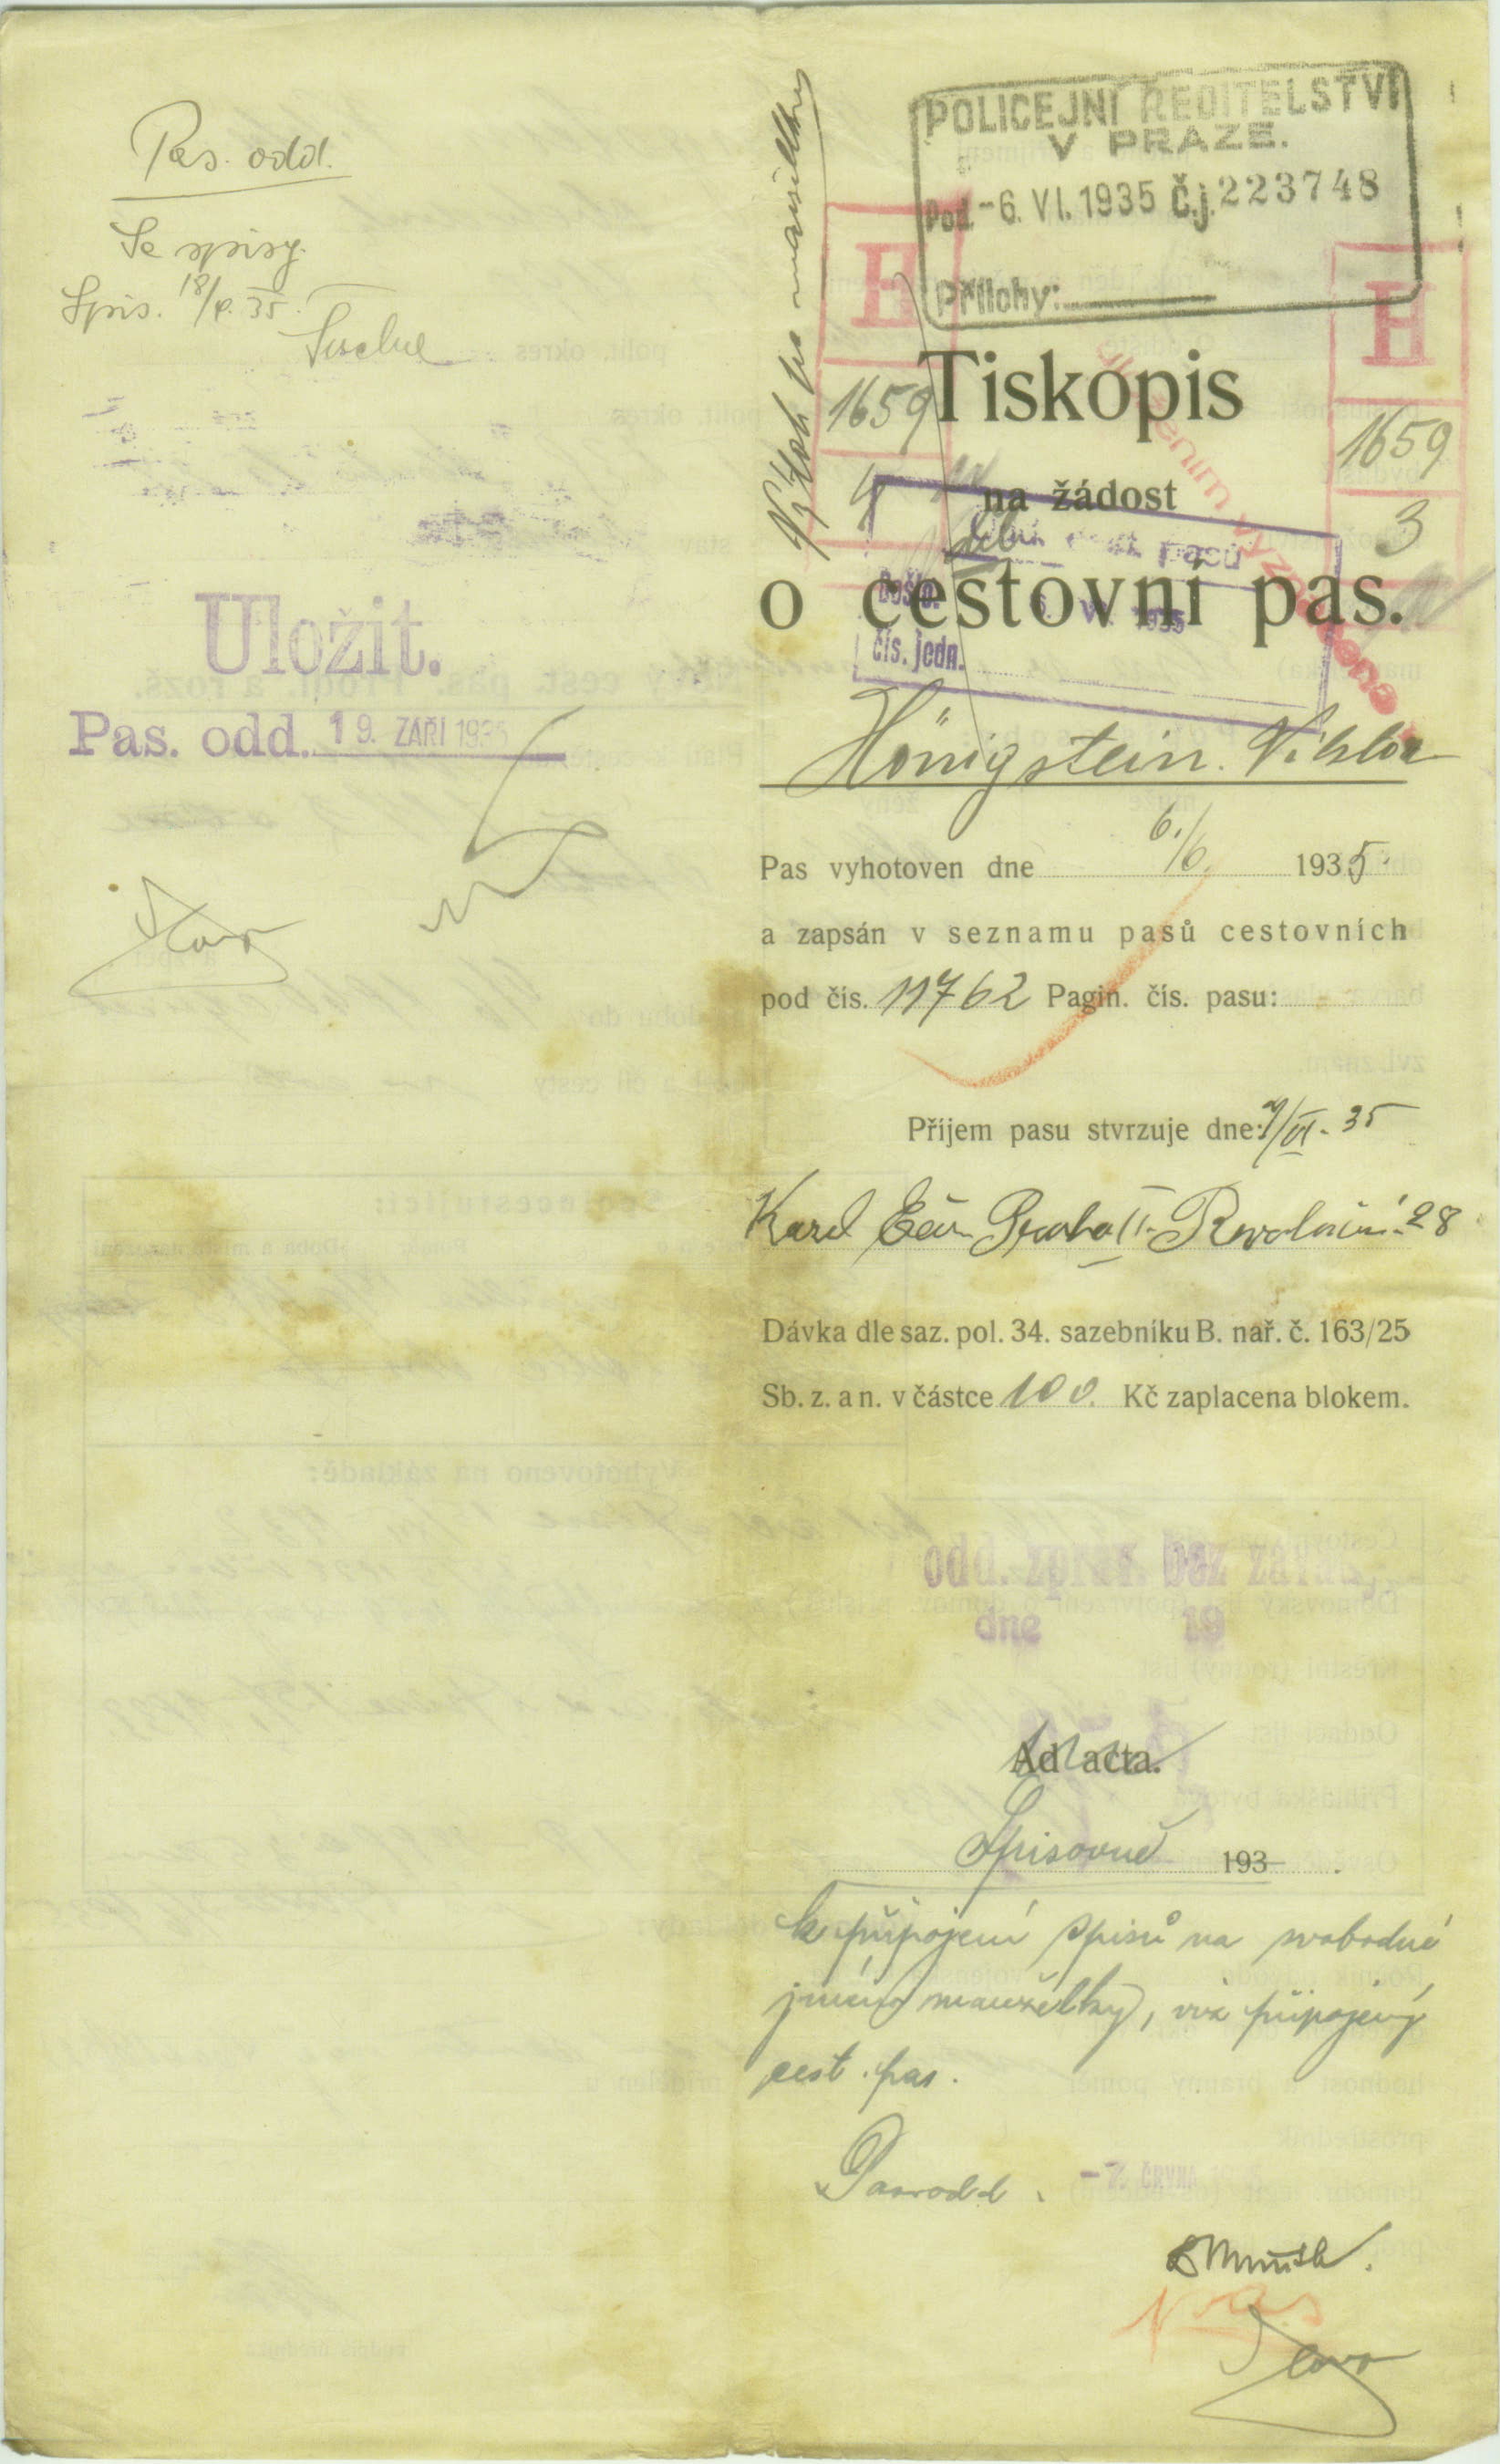 Pas. odd.
Se spisy.
Spis. 18/9. 35.
Uložit.
Pas. odd. 19. ZÁŘÍ 1935
Výtah pro manželku
POLICEJNÍ ŘEDITELSTVÍ
V PRAZE.
Pod. -6. VI. 1935 Č.j. 223748
Přílohy:
H
1659
4
H
1659
3
Tiskopis
na žádost
o cestovní pas.
Došlo: 6. VI. 1935
čís. jedn.
Königstein Viktor
Pas vyhotoven dne 6./6. 1935.
a zapsán v seznamu pasů cestovních
pod čís. 11762 Pagin. čís. pasu: -
Příjem pasu stvrzuje dne: 7/VI. 35
Karel Praha II. Revoluční 28
Dávka dle saz. pol. 34. sazebníku B. nař. č. 163/25
Sb. z. a n. v částce 100. Kč zaplacena blokem.
odd. zpráv. bez
dne 19
Ad acta.
Spisovně 193
k připojení spisů na svobodné
jméno manželky, viz připojený
cest. pas.
Pas. odd. -7. ČRVNA